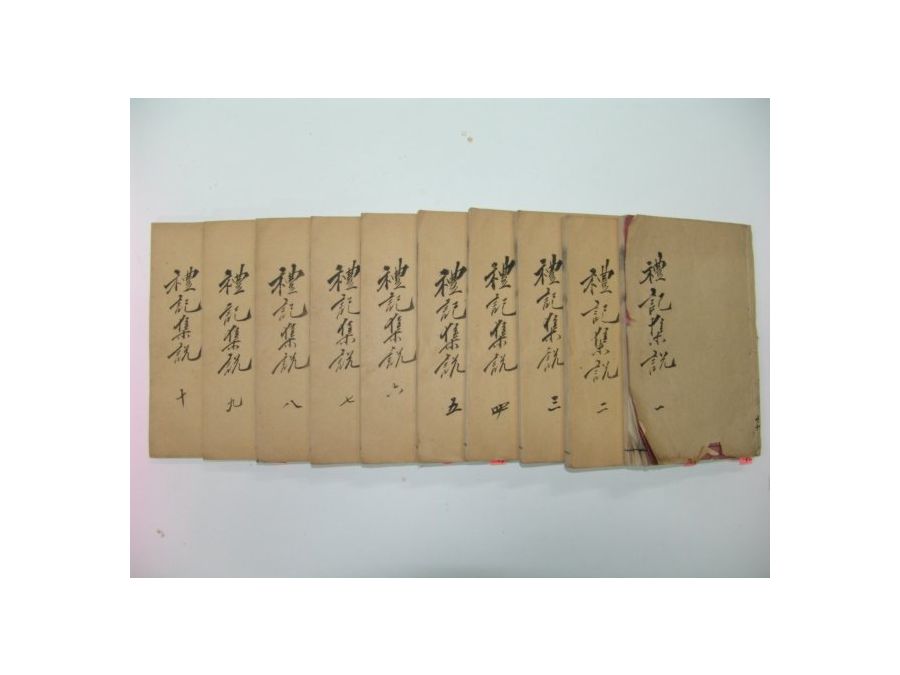 禮記集説 一
禮記集説 二
禮記集説 三
禮記集説 四
禮記集説 五
禮記集説 六
禮記集説 七
禮記集説 八
禮記集説 九
禮記集説 十